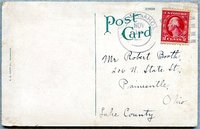 Post
Card
Mr Robert Booth,
216 N. State St.
Painesville,
Ohio
Lake County